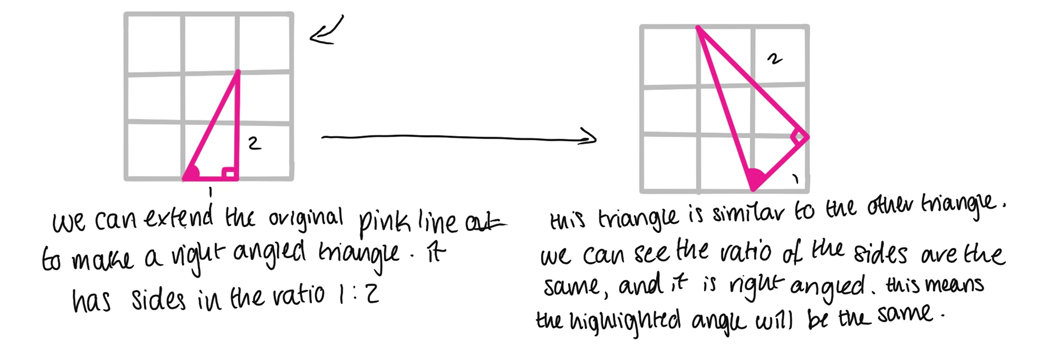 2
1
we can extend the original pink line out
to make a right angled triangle. it
has sides in the ratio 1:2
2
1
this triangle is similar to the other triangle.
we can see the ratio of the sides are the
same, and it is right angled. this means
the highlighted angle will be the same.